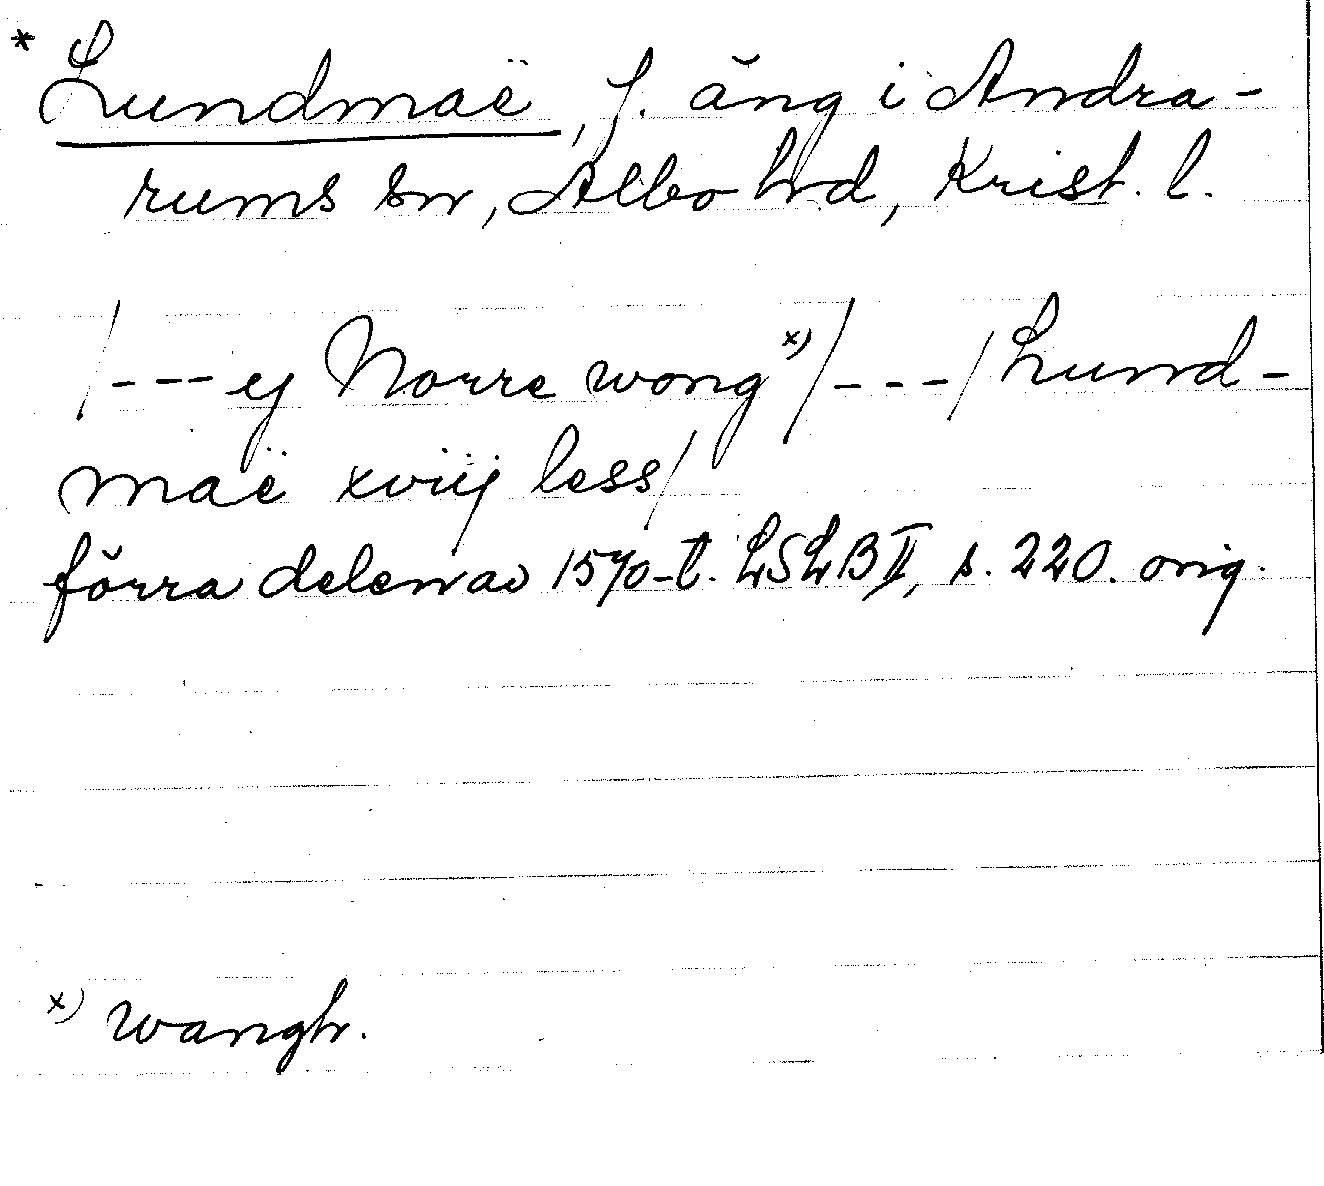 * Lundmaë, f. äng i Andra-
rums sn, Albo hd, Krist. l.
/---ej Norre wong x)/---/Lund-
maë xviij less/
förra delen av 1570-t. LSLB II, s. 220. orig.
x) wangh.